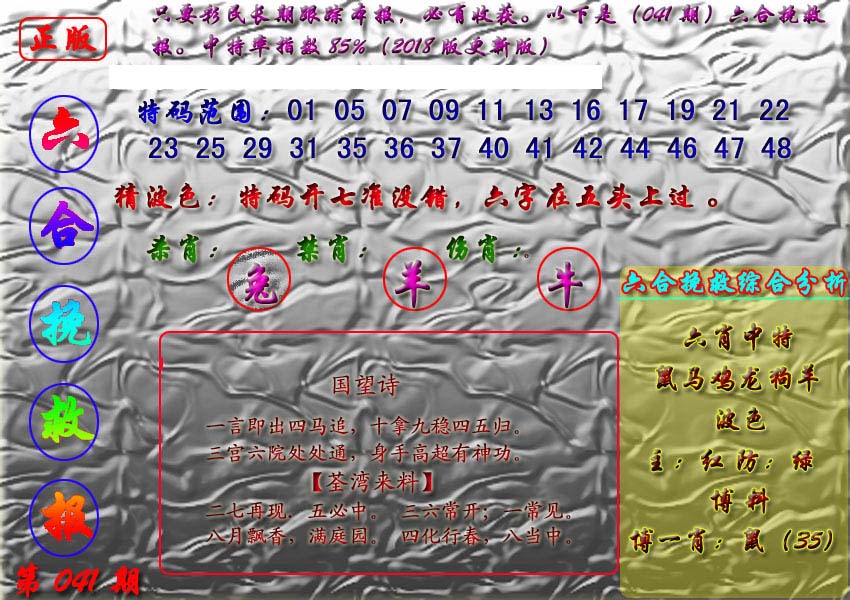 正版
只要彩民长期跟踪本报，必有收获。以下是（041期）六合挽救
报。中特率指数85%（2018版更新版）
六合挽救报
特码范围：01 05 07 09 11 13 16 17 19 21 22
23 25 29 31 35 36 37 40 41 42 44 46 47 48
猜波色：特码开七准没错，六字在五头上过。
杀肖：兔 禁肖：羊 伤肖：牛
国望诗
一言即出四马追，十拿九稳四五归。
三宫六院处处通，身手高超有神功。
【荃湾来料】
二七再现．五必中。 三六常开；一常见。
八月飘香，满庭园。 四化行春，八当中。
六合挽救综合分析
六肖中特
鼠马鸡龙狗羊
波色
主：红防：绿
博料
博一肖：鼠（35）
第041期